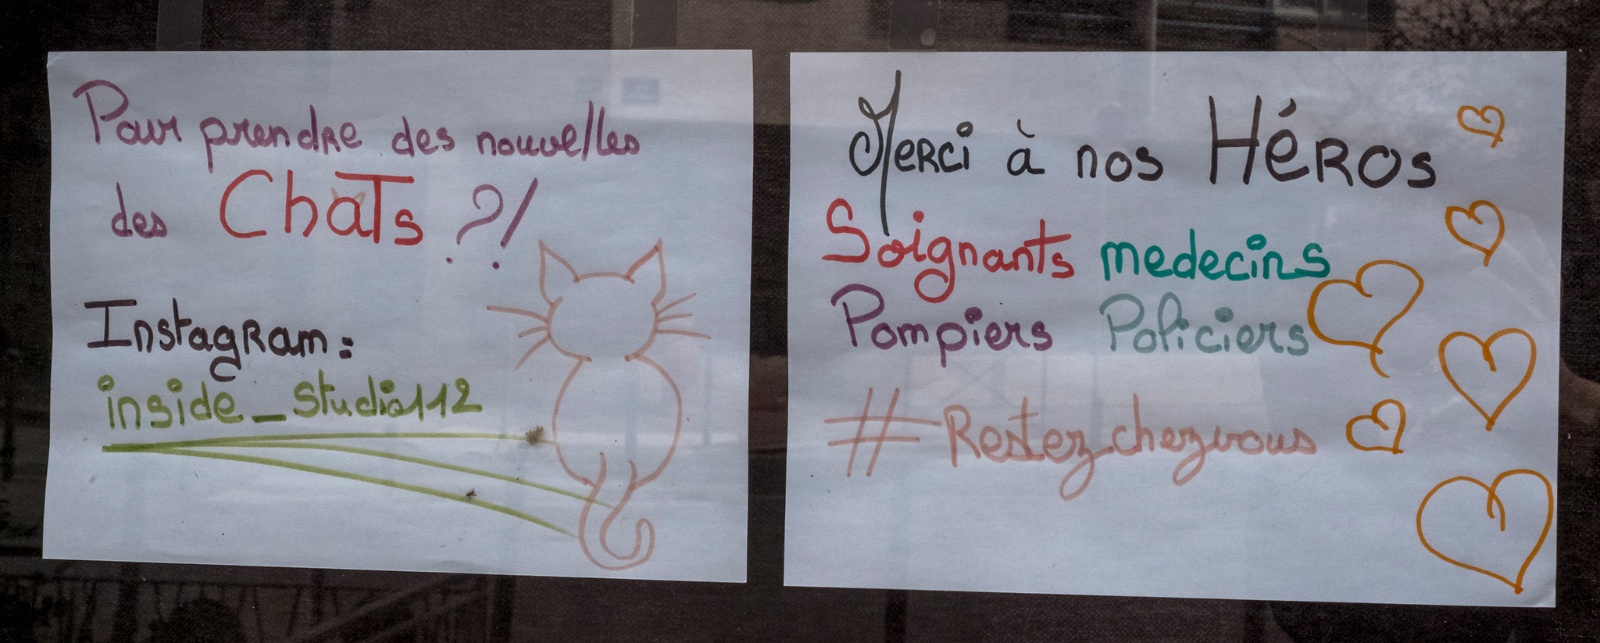 Pour prendre des nouvelles
des Chats ?!
Instagram:
inside_studio112
Merci à nos Héros
Soignants medecins
Pompiers Policiers
#Restezchezvous